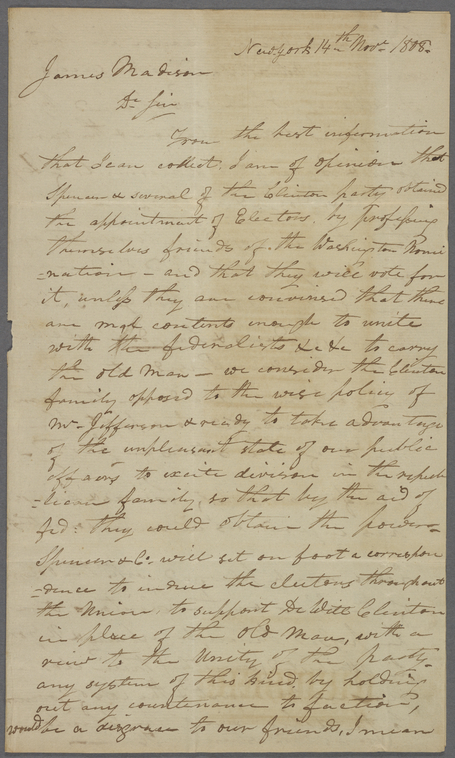 New York 14th Novr 1808.
James Madison
Dr Sir
From the best information
that I can collect. I am of opinion that
Spencer & several of the Clinton party obtained
the appointment of Electors, by professing
themselves friends of the Washington Nomi
=nation – and that they will vote for
it, unless they are convinced that there
are contents enough to unite
with the federalists &c &c to carry
the old Man – we consider the Clinton
family opposed to the wise police of
Mr. Jefferson & ready to take advantage
of the unpleasant state of our public
affairs to excite divison in the repub
=lican family, so that by the aid of
fed: they could obtain the power –
Spencer & Co. will set on foot a correspon
=dence to induce the electors throughout
the Union to support De Witt Clinton
in place of the Old Man, with a
view to the Unity of the party –
any system of this kind by holding
out any countenance to faction,
would be a disgrace to our friends, I mean